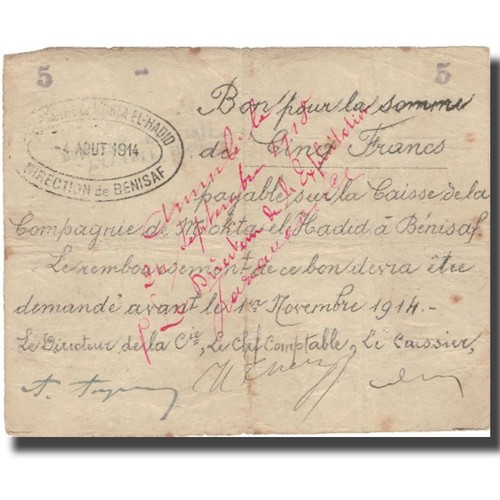 5 - 5
MOKTA EL-HADID
-4 AOUT 1914
DIRECTION de BÉNISAF
Bon pour la somme
de Cinq Francs
payable sur la Caisse de la
Compagnie de Mokta el Hadid à Bénisaf.
Le remboursement de ce bon devra être
demandé avant le 1er Novembre 1914.-
Le Directeur de la Cie, Le Chef Comptable, Le Caissier,
Annulé le
septembre 1918
Le Directeur de l'Exploitation